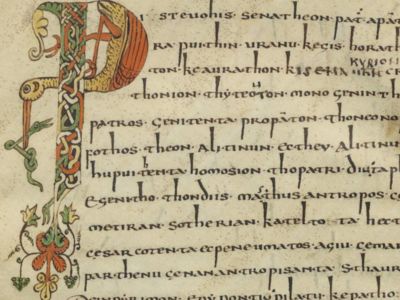 P I·STEVOhIS·SENAThEON·PAT·APAN
RA·PUIThIN·URANU·KEGIS·hORATh
KYRION
TON·KEAURAThON·KISENIU
ThONION·ThYTEUTON·MONOGENIN·T
PATROS·GENITENTA·PROPANTON·ThONCONO
FOThOS·ThEON·ALITINUN·EXThEY·ALITINU
hUPUIThENTA·hOMOSION·ThOPATRI·DI
EGENIThO·ThONDIIS·MASThUS·ANTROPOS·C
METIRAN·SOThERIAN·KATELTO·TA·hECT
CESARCOTENTA·ECPENEUMATOS·AGIU·CEMAR
PARThENU·CENANANTROPISANTA·SThAUR
PILATI·KEPATHO